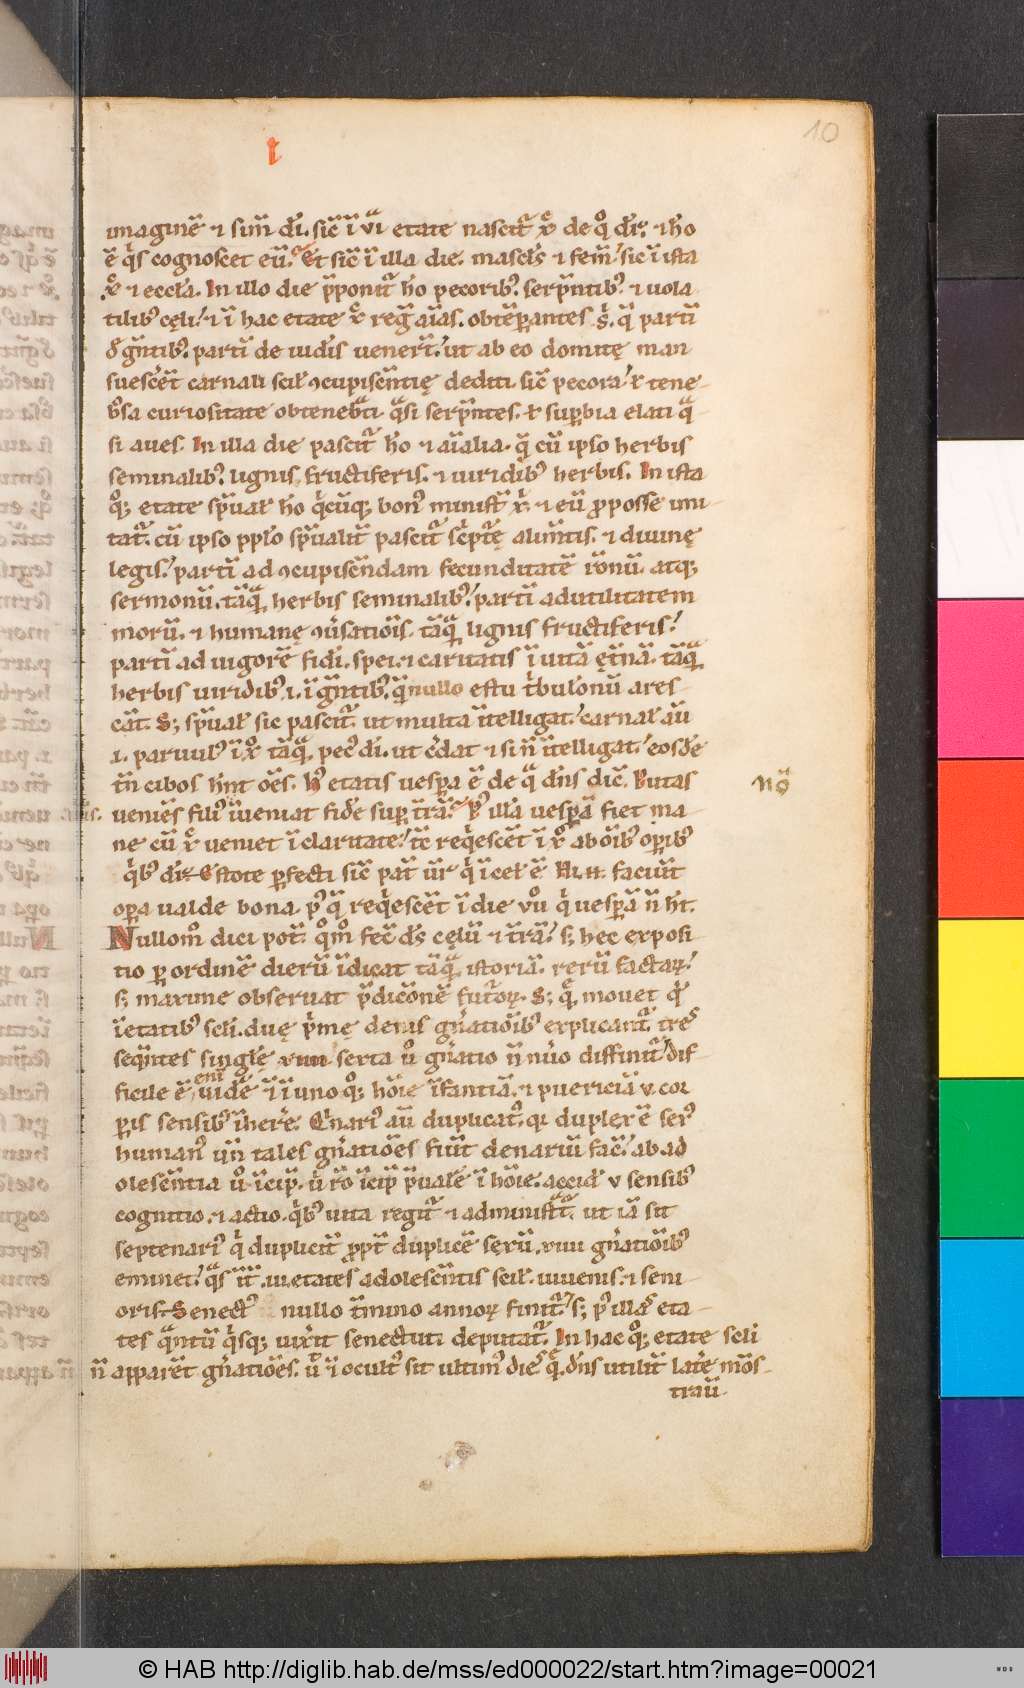 10
i
imaginē ⁊ sim̄ dī. sic̄ ī vi etate nascit᷑ de qͦ dr̄. ⁊ ho
ē qͥs cognoscet eū. Et sic̄ ī illa die. mascl̄s ⁊ fem̄. sic̄ ī ista
⁊ eccl̄a. In illo die p̄ponit᷑ ho pecoribꝰ. serp̄ntibꝰ. ⁊ uola
tilibꝰ cęli. ⁊ ī hac etate reḡ aīas. obtēꝑantes partī
gn̄tibꝰ. partī de iudīs uener̄t. ut ab eo domitę man
suesc̄et carnali scil̄ ꝯcupiscn̄tię dediti. sic̄ pecora. ł tene
bͥsa curiositate obtenebͣti. qͣsi serp̄ntes. ł suꝑbia elati qͣ
si aues. In illa die pascit᷑ ho ⁊ aīalia. q̄ cū ipso herbis
seminalibꝰ. lignis fructiferis. ⁊ uiridibꝰ herbis. In ista
qͦꝫ etate sp̄ual̄ ho qͥcūqꝫ bonꝰ minist̄ ⁊ eū ꝓposse imi
tat᷑. cū ipso pplo sp̄ualit̄ pascit᷑ sc̄ptᷓrę alim̄tis. ⁊ diuinę
legis. partī ad ꝯcupiscēndam fecunditatē rōnū. atqꝫ
sermonū. tāqͣ herbis seminalibꝰ. partī adutilitatem
morū. ⁊ humanę ꝯūsatiōis. tāqͣ lignis fructiferis.
partī ad uigorē fidi. spei. ⁊ caritatis ī uitā ęt̄nā. tāqͣ
herbis uiridibꝰ. i. ī gn̄tibꝰ. q̄ nullo estu t̄bulōnū ares
cāt. Sꝫ sp̄ual̄ sic pascit᷑. ut multa ītelligat. carnal̄ aū
i. paruulꝰ ī tāqͣ pecꝰ di. ut c̄dat ⁊ si n̄ ītelligat. eosdē
tn̄ cibos hn̄t oēs. Hꝰ etatis uesꝑa ē de qͣ dn̄s dic̄. Putas
ueniēs filiꝰ īueniat fidē suꝑ t̄rā. Pꝰ illā uesꝑā fiet ma
ne cū ueniet ī claritate. tc̄ reqͥescēt ī ab oībꝰ oꝑibꝰ
qͥbꝰ dr̄. Estote ꝑfecti sic̄ pat̄ ur̄ qͥ ī cel̄ ē faciūt
oꝑa ualde bona. pꝰ qͣ reqͥescēt ī die vͦ qͥ uesꝑā n̄ ht̄.
Nullomͦ dici pot̄. qͦmͦ fec̄ ds̄ cęlū ⁊ t̄rā. sꝫ hec exposi
tio ꝑ ordinē dierū īdicat tāqͣ istoriā. rerū factaꝝ.
sꝫ maxime obseruat p̄dicōnē futᷓoꝝ. Sꝫ qͣ mouet qͥ
īetatibꝰ scl̄i. duę pͥmę denis gn̄atiōibꝰ explicant᷑. tres
seqn̄tes singlę xiiii serta vͦ gn̄atio n̄ nūo diffinit᷑. dif
ficile ē enī uidē ⁊ ī uno qͦꝫ hōie īfantiā. ⁊ puericiā v. cor
ꝑis sensibꝰ īherē. Qͥnariꝰ aū duplicatꝰ. qi duplex ē sexꝰ
humanꝰ un̄ tales gn̄atiōes fiūt denariū fac̄. ab ad
olesc̄entia vͦ īcip̄. rō īcip̄ p̄ualē ī hōie. accid̄ v sensibꝰ
cognitio. ⁊ actio. qͥbꝰ uita regit᷑ ⁊ administᷓt᷑. ut iā sit
septenariꝰ qͥ duplicit̄ ꝓpt̄ duplicē sexū. xiiii gn̄atiōibꝰ
eminet. qͣs īt̄. iii. etates adolescn̄tis scil̄. iuuenis. ⁊ seni
oris. Senectꝰ nullo t̄mino annoꝝ finit᷑. sꝫ pꝰ illas eta
tes qͣntū qͥsqꝫ uixit̄ senectuti deputat᷑. In hac qͦꝫ etate scl̄i
n̄ apparēt gn̄atiōes. ut ⁊ ocultꝰ sit ultimꝰ dies qͣ. dn̄s utilit̄ latē mōs
traū
© HAB http://diglib.hab.de/mss/ed000022/start.htm?image=00021